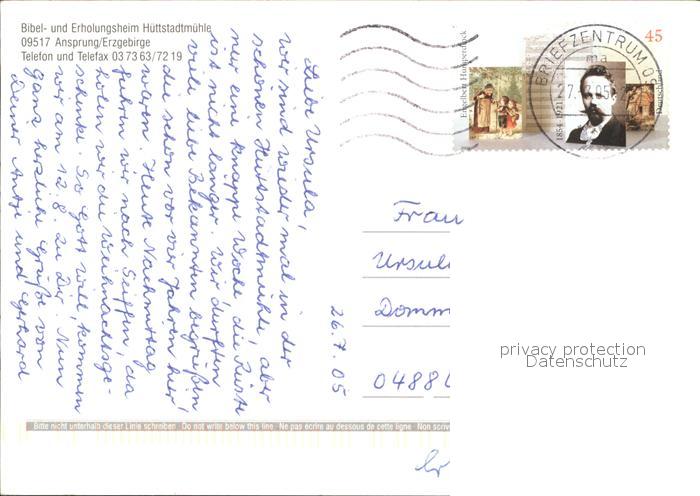 Bibel- und Erholungsheim Hüttstadtmühle
09517 Ansprung/Erzgebirge
Telefon und Telefax 03 73 63/72 19
Liebe Ursula,
wir sind wieder mal in der
schönen Hüttstadtmühle, aber
nur eine knappe Woche, die Rüste
ist nicht länger. Wir durften
viele liebe Bekannten begrüßen
die schon vor vier Jahren hier
waren. Heute Nachmittag
fahren wir nach Seiffen, da
holen wir die Weihnachtsge-
schenke. So Gott will, kommen
wir am 12.8. zu Dir. Nun
ganz herzliche Grüße von
Deiner Antje und Gerhard
26.7.05
Engelbert Humperdinck
1854-1921
45
Deutschland
BRIEFZENTRUM 0
ma
27. 7.05
Frau
Ursul
Domm
04886
privacy protection
Datenschutz
Bitte nicht unterhalb dieser Linie schreiben · Do not write below this line. · Ne pas écrire au dessous de cette ligne · Non scriv